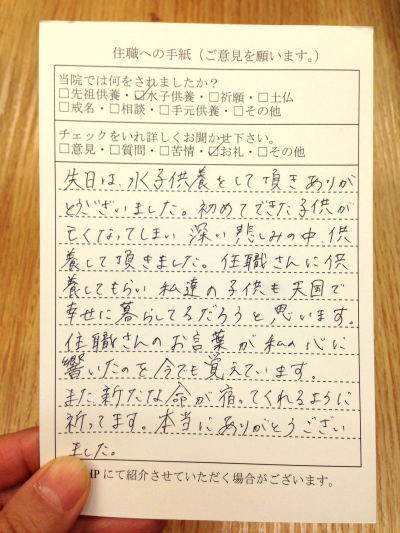 住職への手紙（ご意見を願います。）
当院では何をされましたか？
□先祖供養・☑水子供養・□祈願・□土仏
□戒名・□相談・□手元供養・□その他
チェックをいれ詳しくお聞かせ下さい。
□意見・□質問・□苦情・☑お礼・□その他
先日は、水子供養をして頂きありが
とうございました。初めてできた子供が
亡くなってしまい深い悲しみの中、供
養して頂きました。住職さんに供
養してもらい私達の子供も天国で
幸せに暮らしてるだろうと思います。
住職さんのお言葉が私の心に
響いたのを今でも覚えています。
また新たな命が宿ってくれるように
祈ってます。本当にありがとうござい
ました。
HPにて紹介させていただく場合がございます。